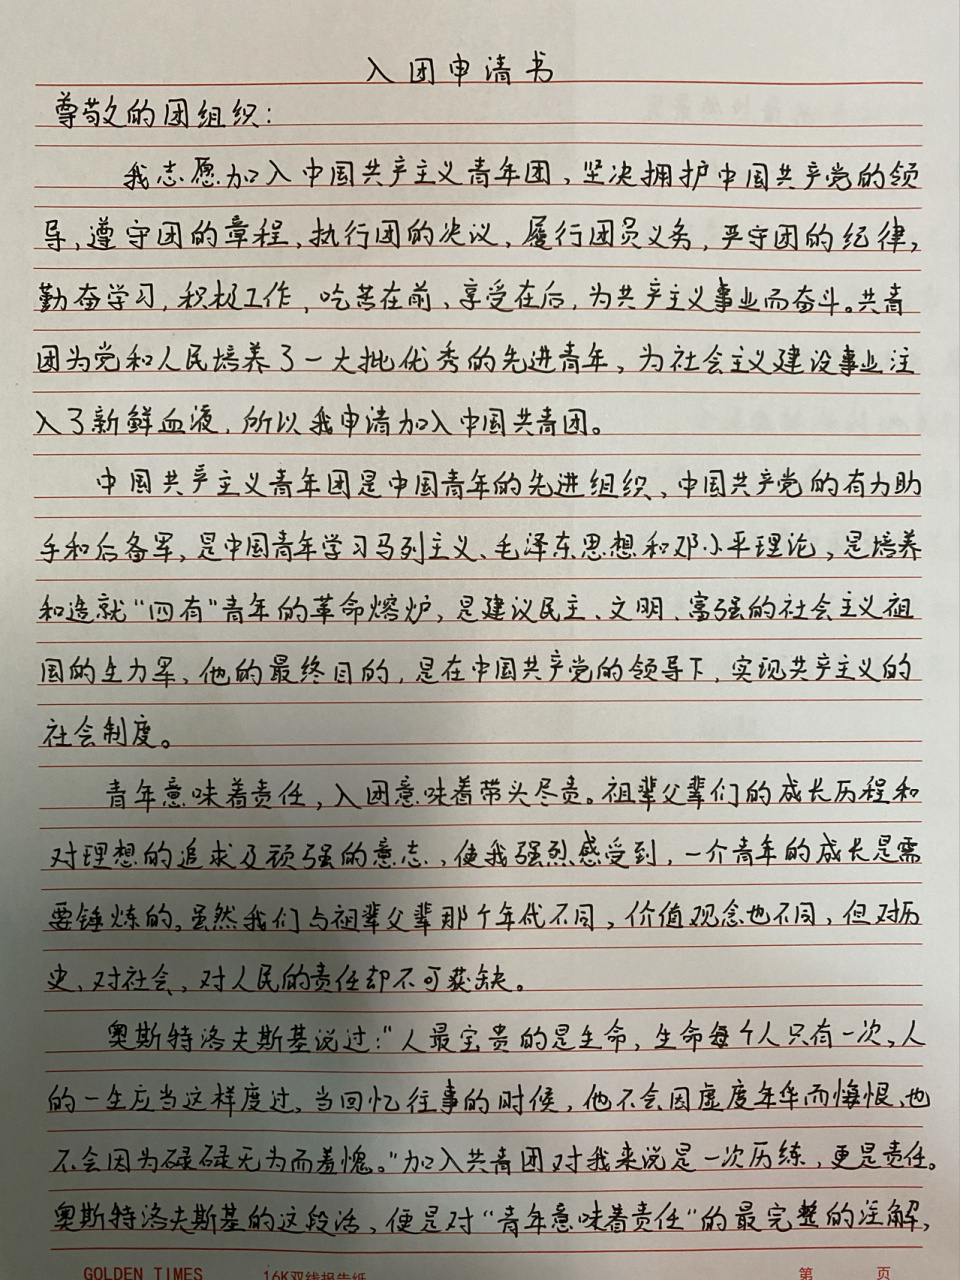 入团申请书
尊敬的团组织：
我志愿加入中国共产主义青年团，坚决拥护中国共产党的领
导，遵守团的章程，执行团的决议，履行团员义务，严守团的纪律，
勤奋学习，积极工作，吃苦在前，享受在后，为共产主义事业而奋斗。共青
团为党和人民培养了一大批优秀的先进青年，为社会主义建设事业注
入了新鲜血液，所以我申请加入中国共青团。
中国共产主义青年团是中国青年的先进组织、中国共产党的有力助
手和后备军，是中国青年学习马列主义、毛泽东思想和邓小平理论，是培养
和造就“四有”青年的革命熔炉，是建议民主、文明、富强的社会主义祖
国的生力军、他的最终目的，是在中国共产党的领导下，实现共产主义的
社会制度。
青年意味着责任，入团意味着带头尽责。祖辈父辈们的成长历程和
对理想的追求及顽强的意志，使我强烈感受到，一个青年的成长是需
要锤炼的。虽然我们与祖辈父辈那个年代不同，价值观念也不同，但对历
史、对社会，对人民的责任却不可或缺。
奥斯特洛夫斯基说过：“人最宝贵的是生命，生命每个人只有一次，人
的一生应当这样度过，当回忆往事的时候，他不会因虚度年华而悔恨、也
不会因为碌碌无为而羞愧。”加入共青团对我来说是一次历练，更是责任。
奥斯特洛夫斯基的这段话，便是对“青年意味着责任”的最完整的注解，
GOLDEN TIMES 16K双线报告纸 第 页